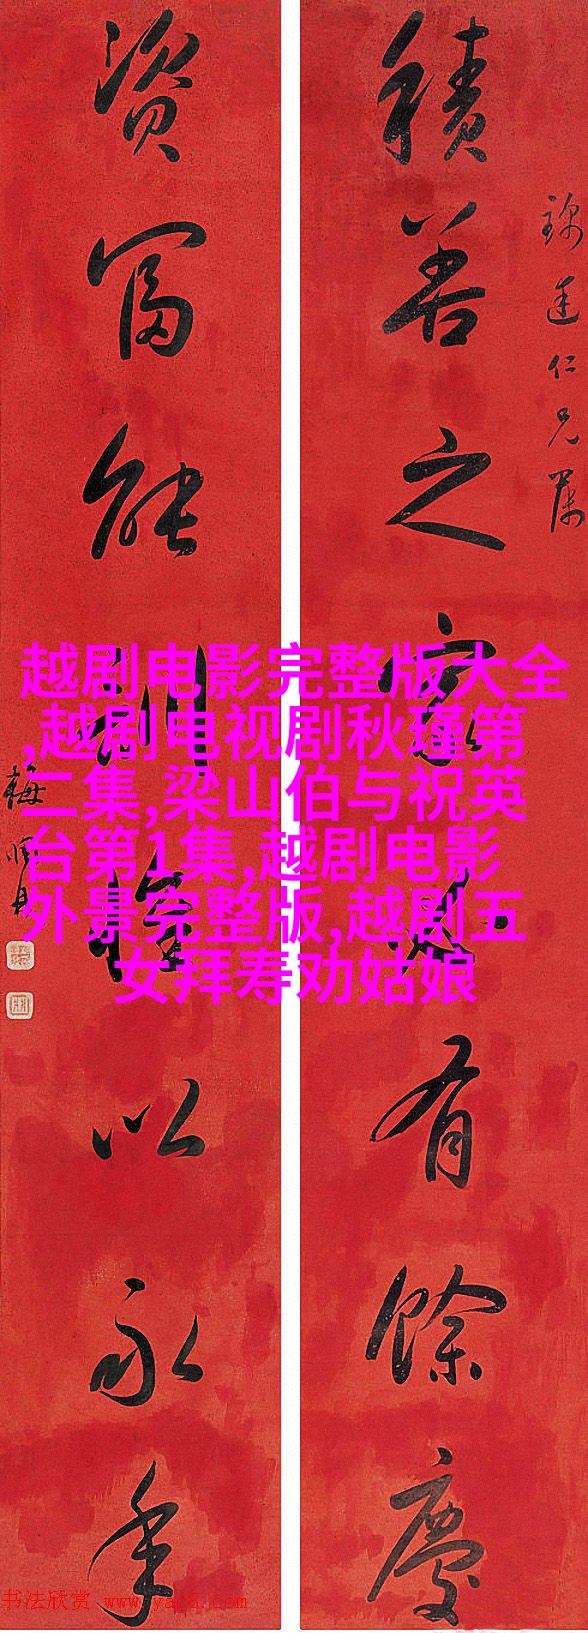 積善之家必有餘慶
仁兄屬
資富能訓惟以永年
梅調鼎
越剧电影完整版大全
,越剧电视剧秋瑾第
二集,梁山伯与祝英
台第1集,越剧电影
外景完整版,越剧五
女拜寿劝姑娘
书法欣赏 www.yac8.com